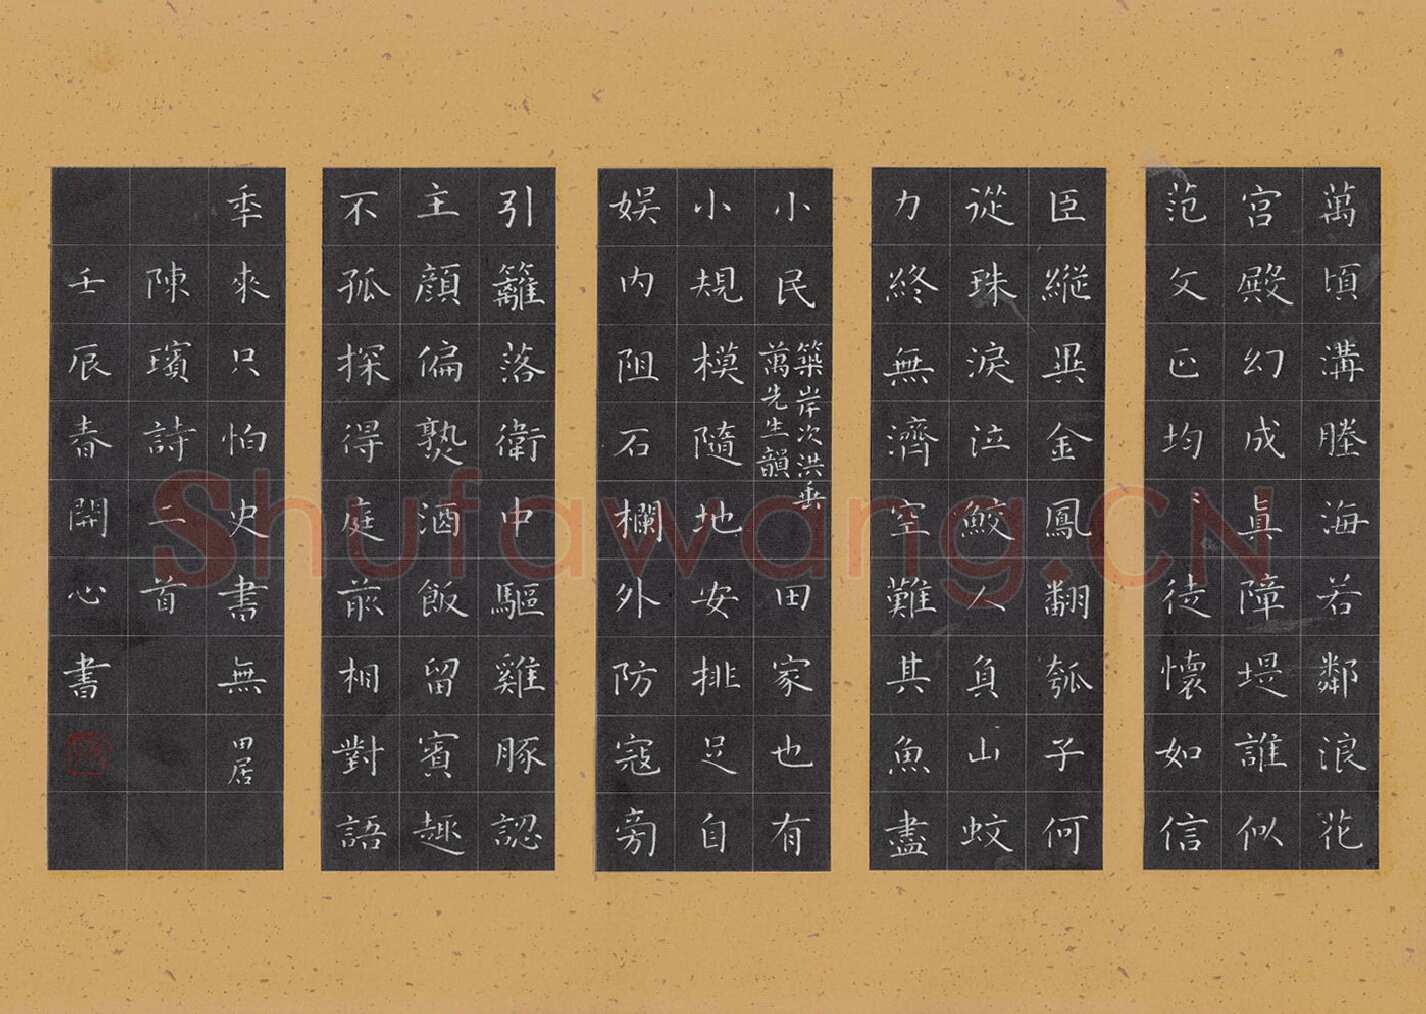 萬頃溝塍海若鄰浪花
宮殿幻成眞障堤誰似
范文正均〻徒懷如信
臣縱異金鳳翻瓠子何
從珠淚泣鮫人負山蚊
力終無濟空難其魚盡
小民
築岸次洪垂
萬先生韻
田家也有
小規模隨地安排足自
娱内阻石欄外防寇旁
引籬落衛中驅雞豚認
主顏偏熟酒飯留賓趣
不孤探得庭前相對語
秊來只怕史書無
田居
陳璸詩二首
壬辰春開心書
Shufawang.CN